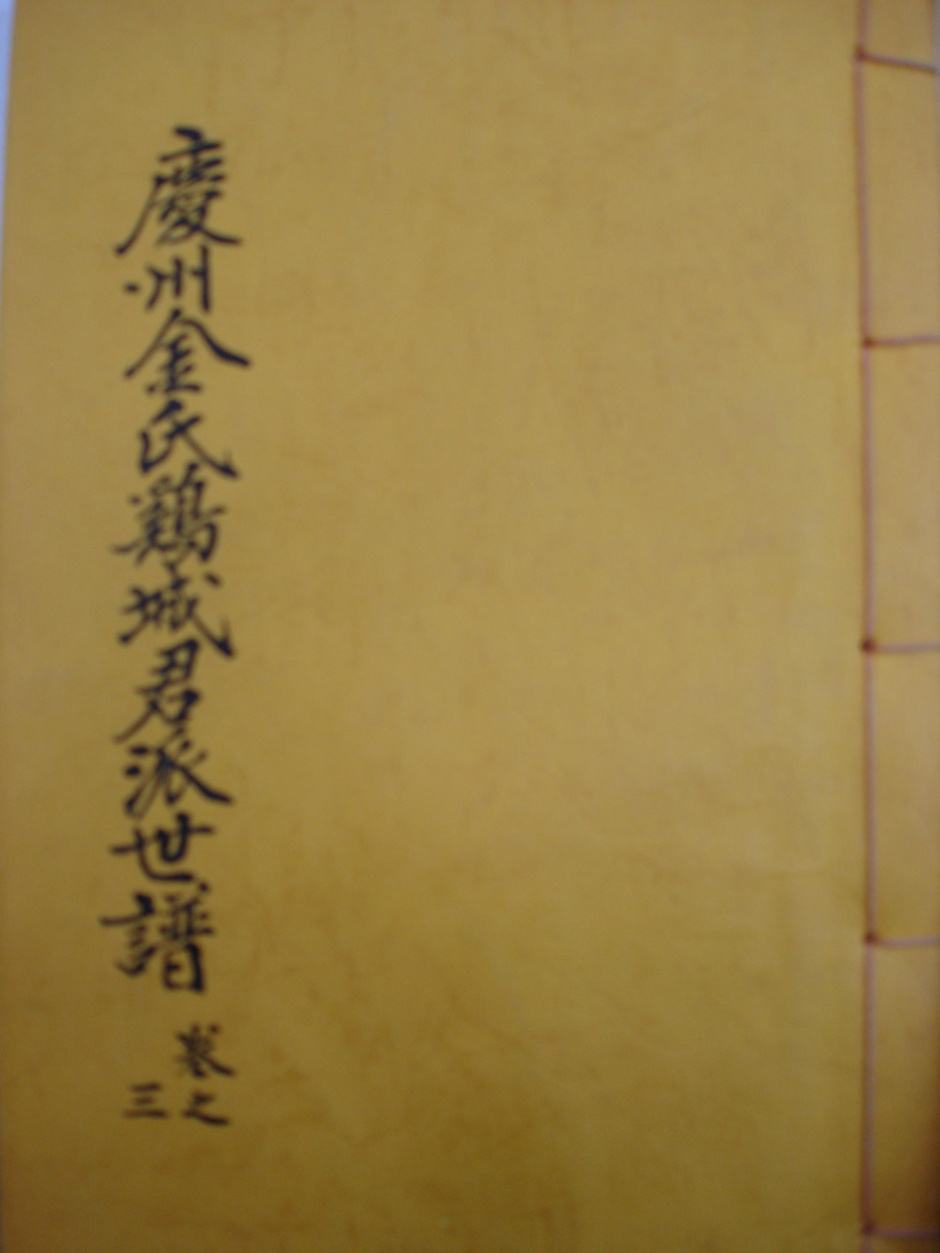 慶州金氏鷄城君派世譜
卷之
三